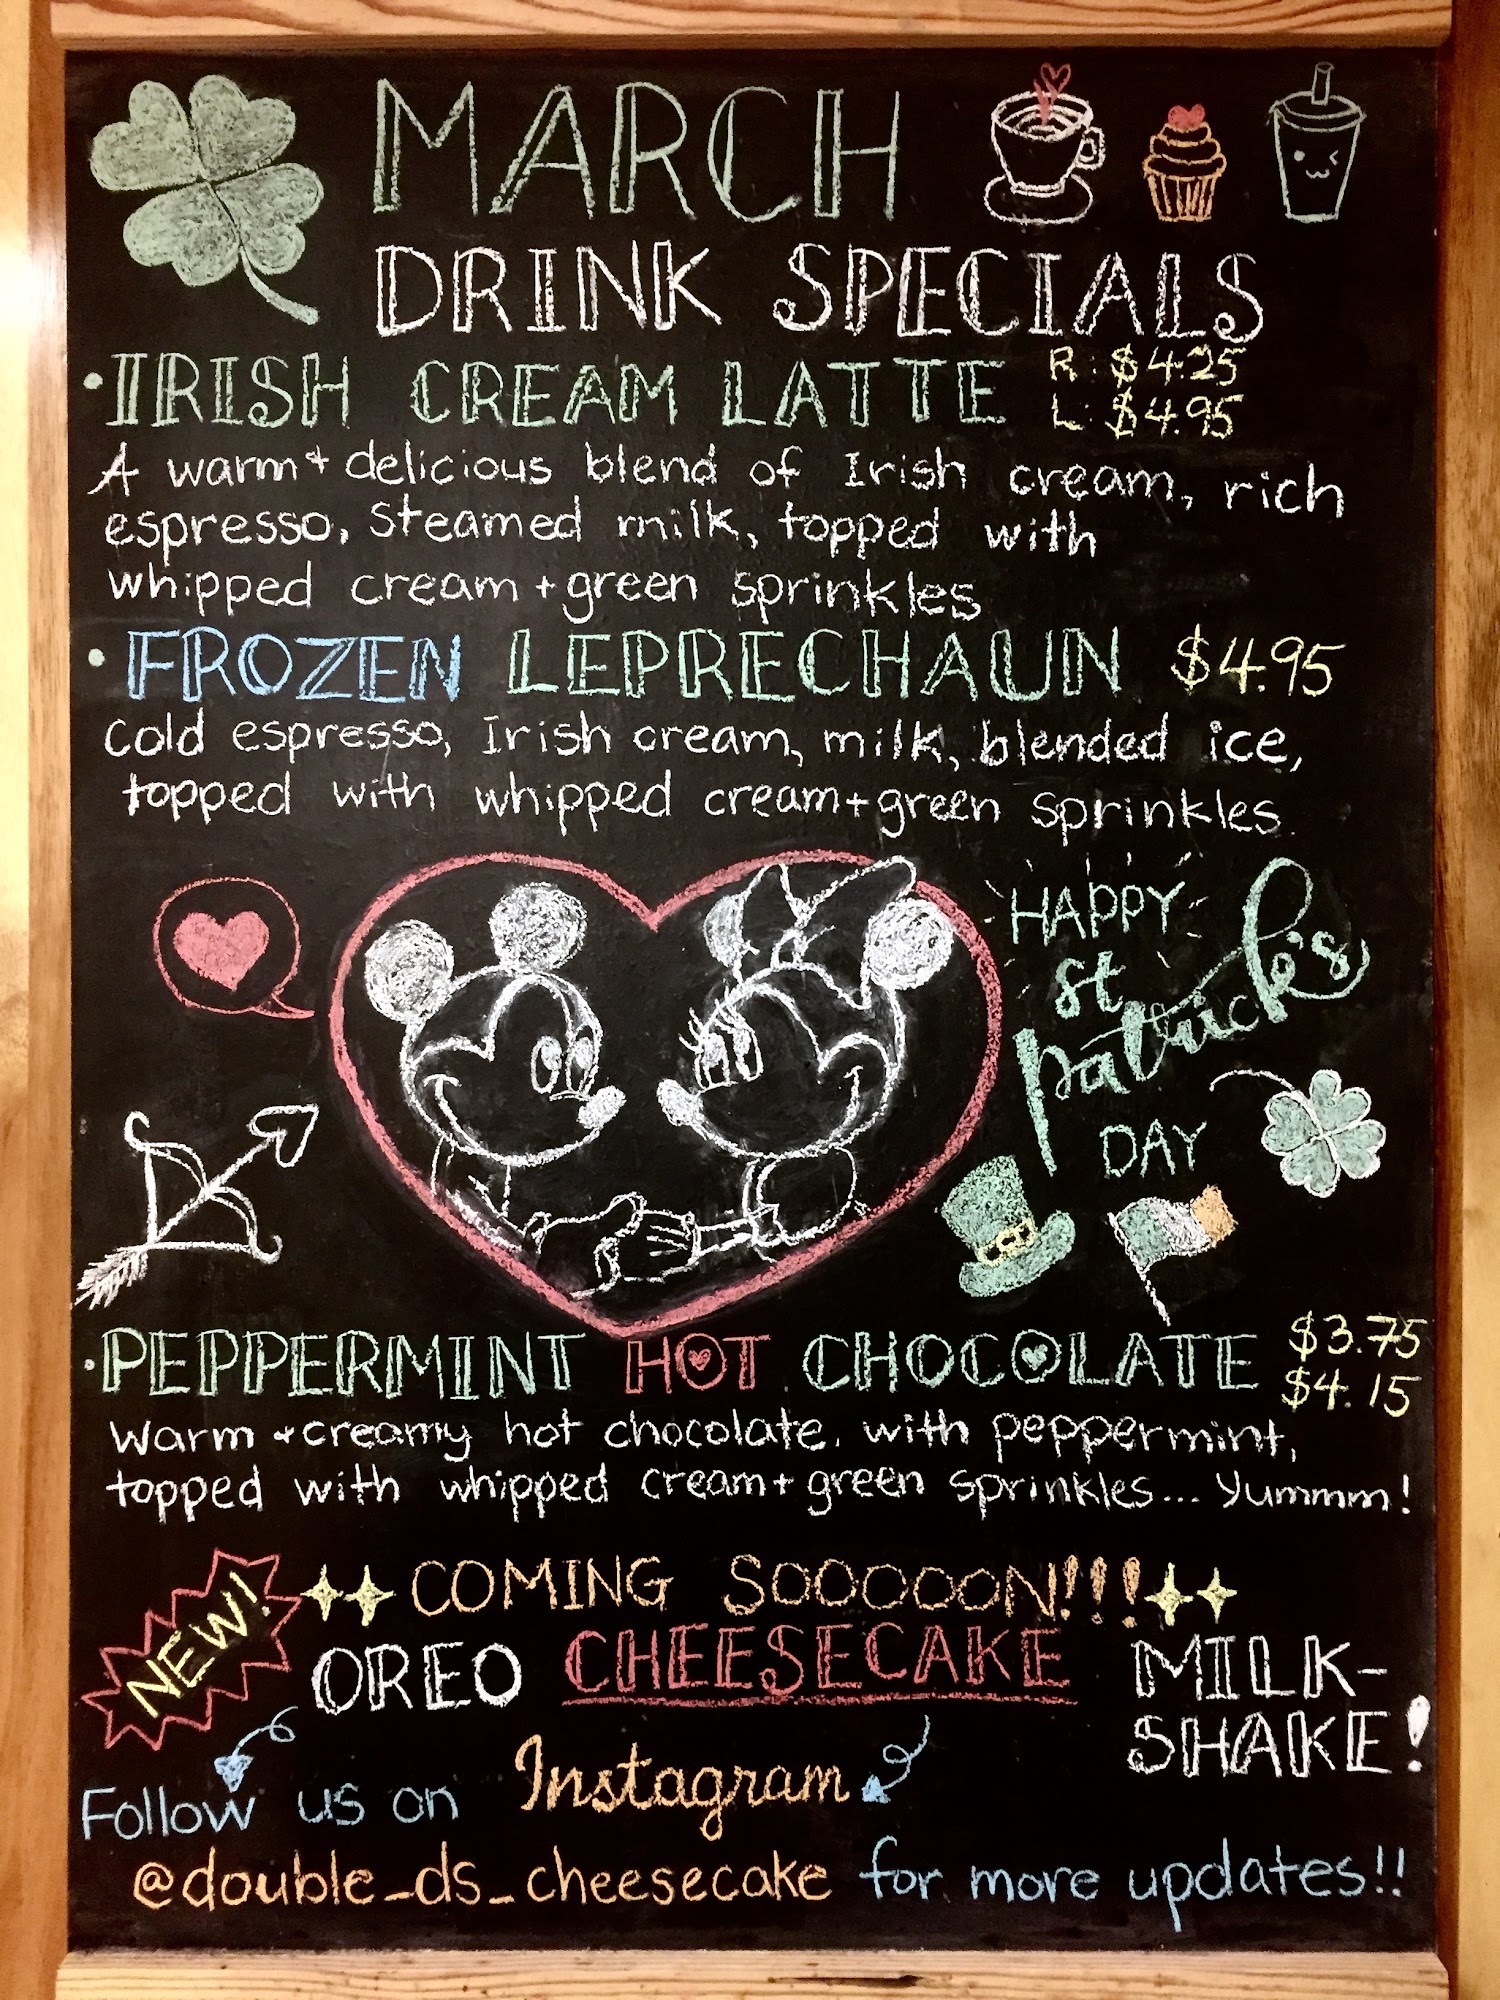 MARCH
DRINK SPECIALS
• IRISH CREAM LATTE R: $4.25
L: $4.95
A warm + delicious blend of Irish cream, rich
espresso, steamed milk, topped with
whipped cream + green sprinkles
• FROZEN LEPRECHAUN $4.95
Cold espresso, Irish cream, milk, blended ice,
topped with whipped cream + green sprinkles
HAPPY
st
Patrick's
DAY
• PEPPERMINT HOT CHOCOLATE $3.75
$4.15
Warm + creamy hot chocolate, with peppermint,
topped with whipped cream + green sprinkles... Yummm!
NEW!
COMING SOOOOON!!!
OREO CHEESECAKE MILK-
SHAKE!
Follow us on Instagram
@double_ds_cheesecake for more updates!!